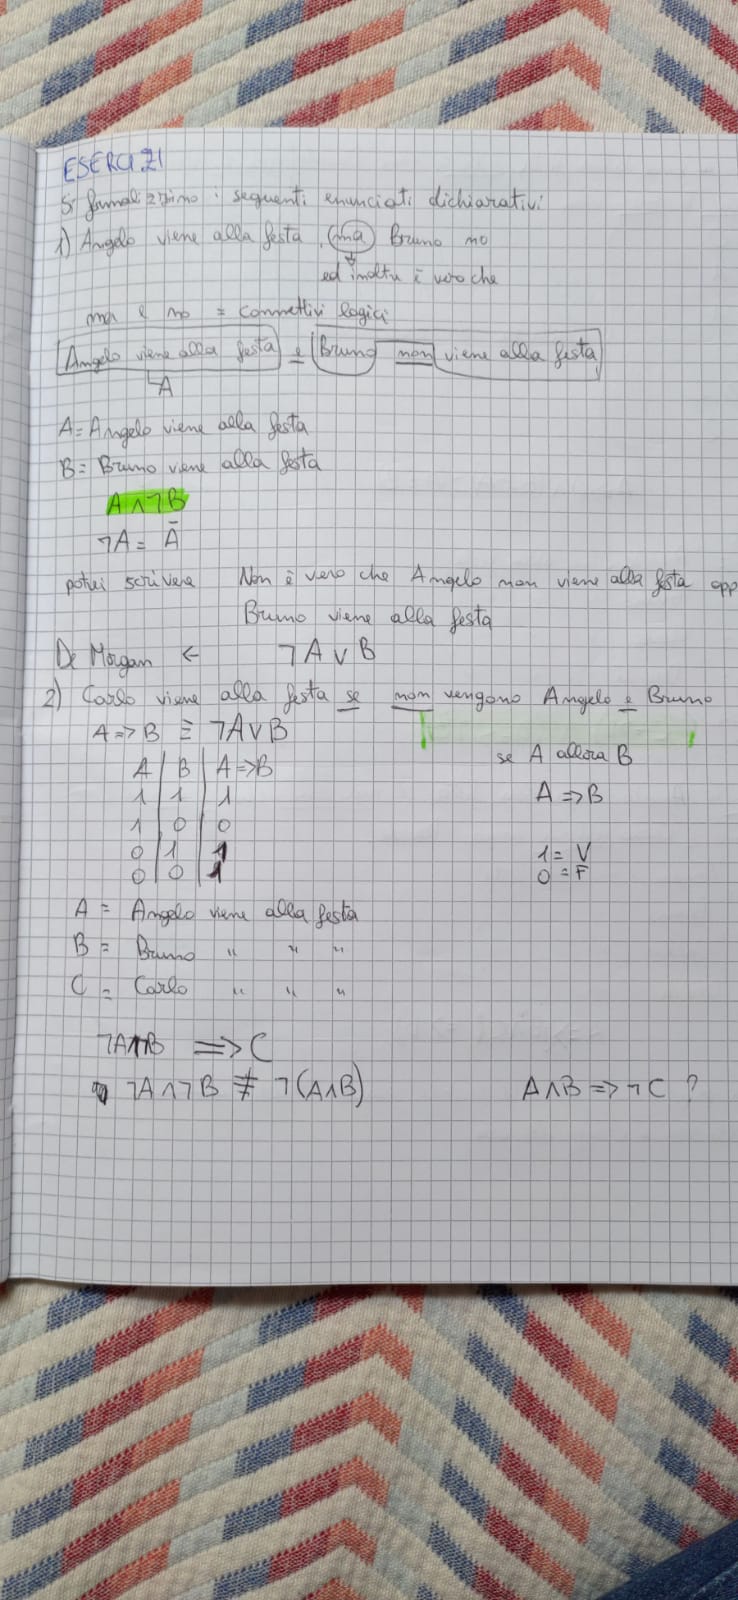 ESERCIZI
Si formalizzino i seguenti enunciati dichiarativi:
1) Angelo viene alla festa, ma Bruno no
ed inoltre è vero che
ma e no = connettivi logici
Angelo viene alla festa e Bruno non viene alla festa
A
A = Angelo viene alla festa
B = Bruno viene alla festa
A ∧ ¬B
¬A = Ā
potrei scrivere Non è vero che Angelo non viene alla festa opp
Bruno viene alla festa
De Morgan ← ¬A ∨ B
2) Carlo viene alla festa se non vengono Angelo e Bruno
A => B ≡ ¬A ∨ B
se A allora B
A | B | A => B
A => B
1 | 1 | 1
1 | 0 | 0
0 | 1 | 1
1 = V
0 | 0 | 1
0 = F
A = Angelo viene alla festa
B = Bruno " " "
C = Carlo " " "
¬A ∧ ¬B => C
¬A ∧ ¬B ≢ ¬(A ∧ B)
A ∧ B => ¬C ?